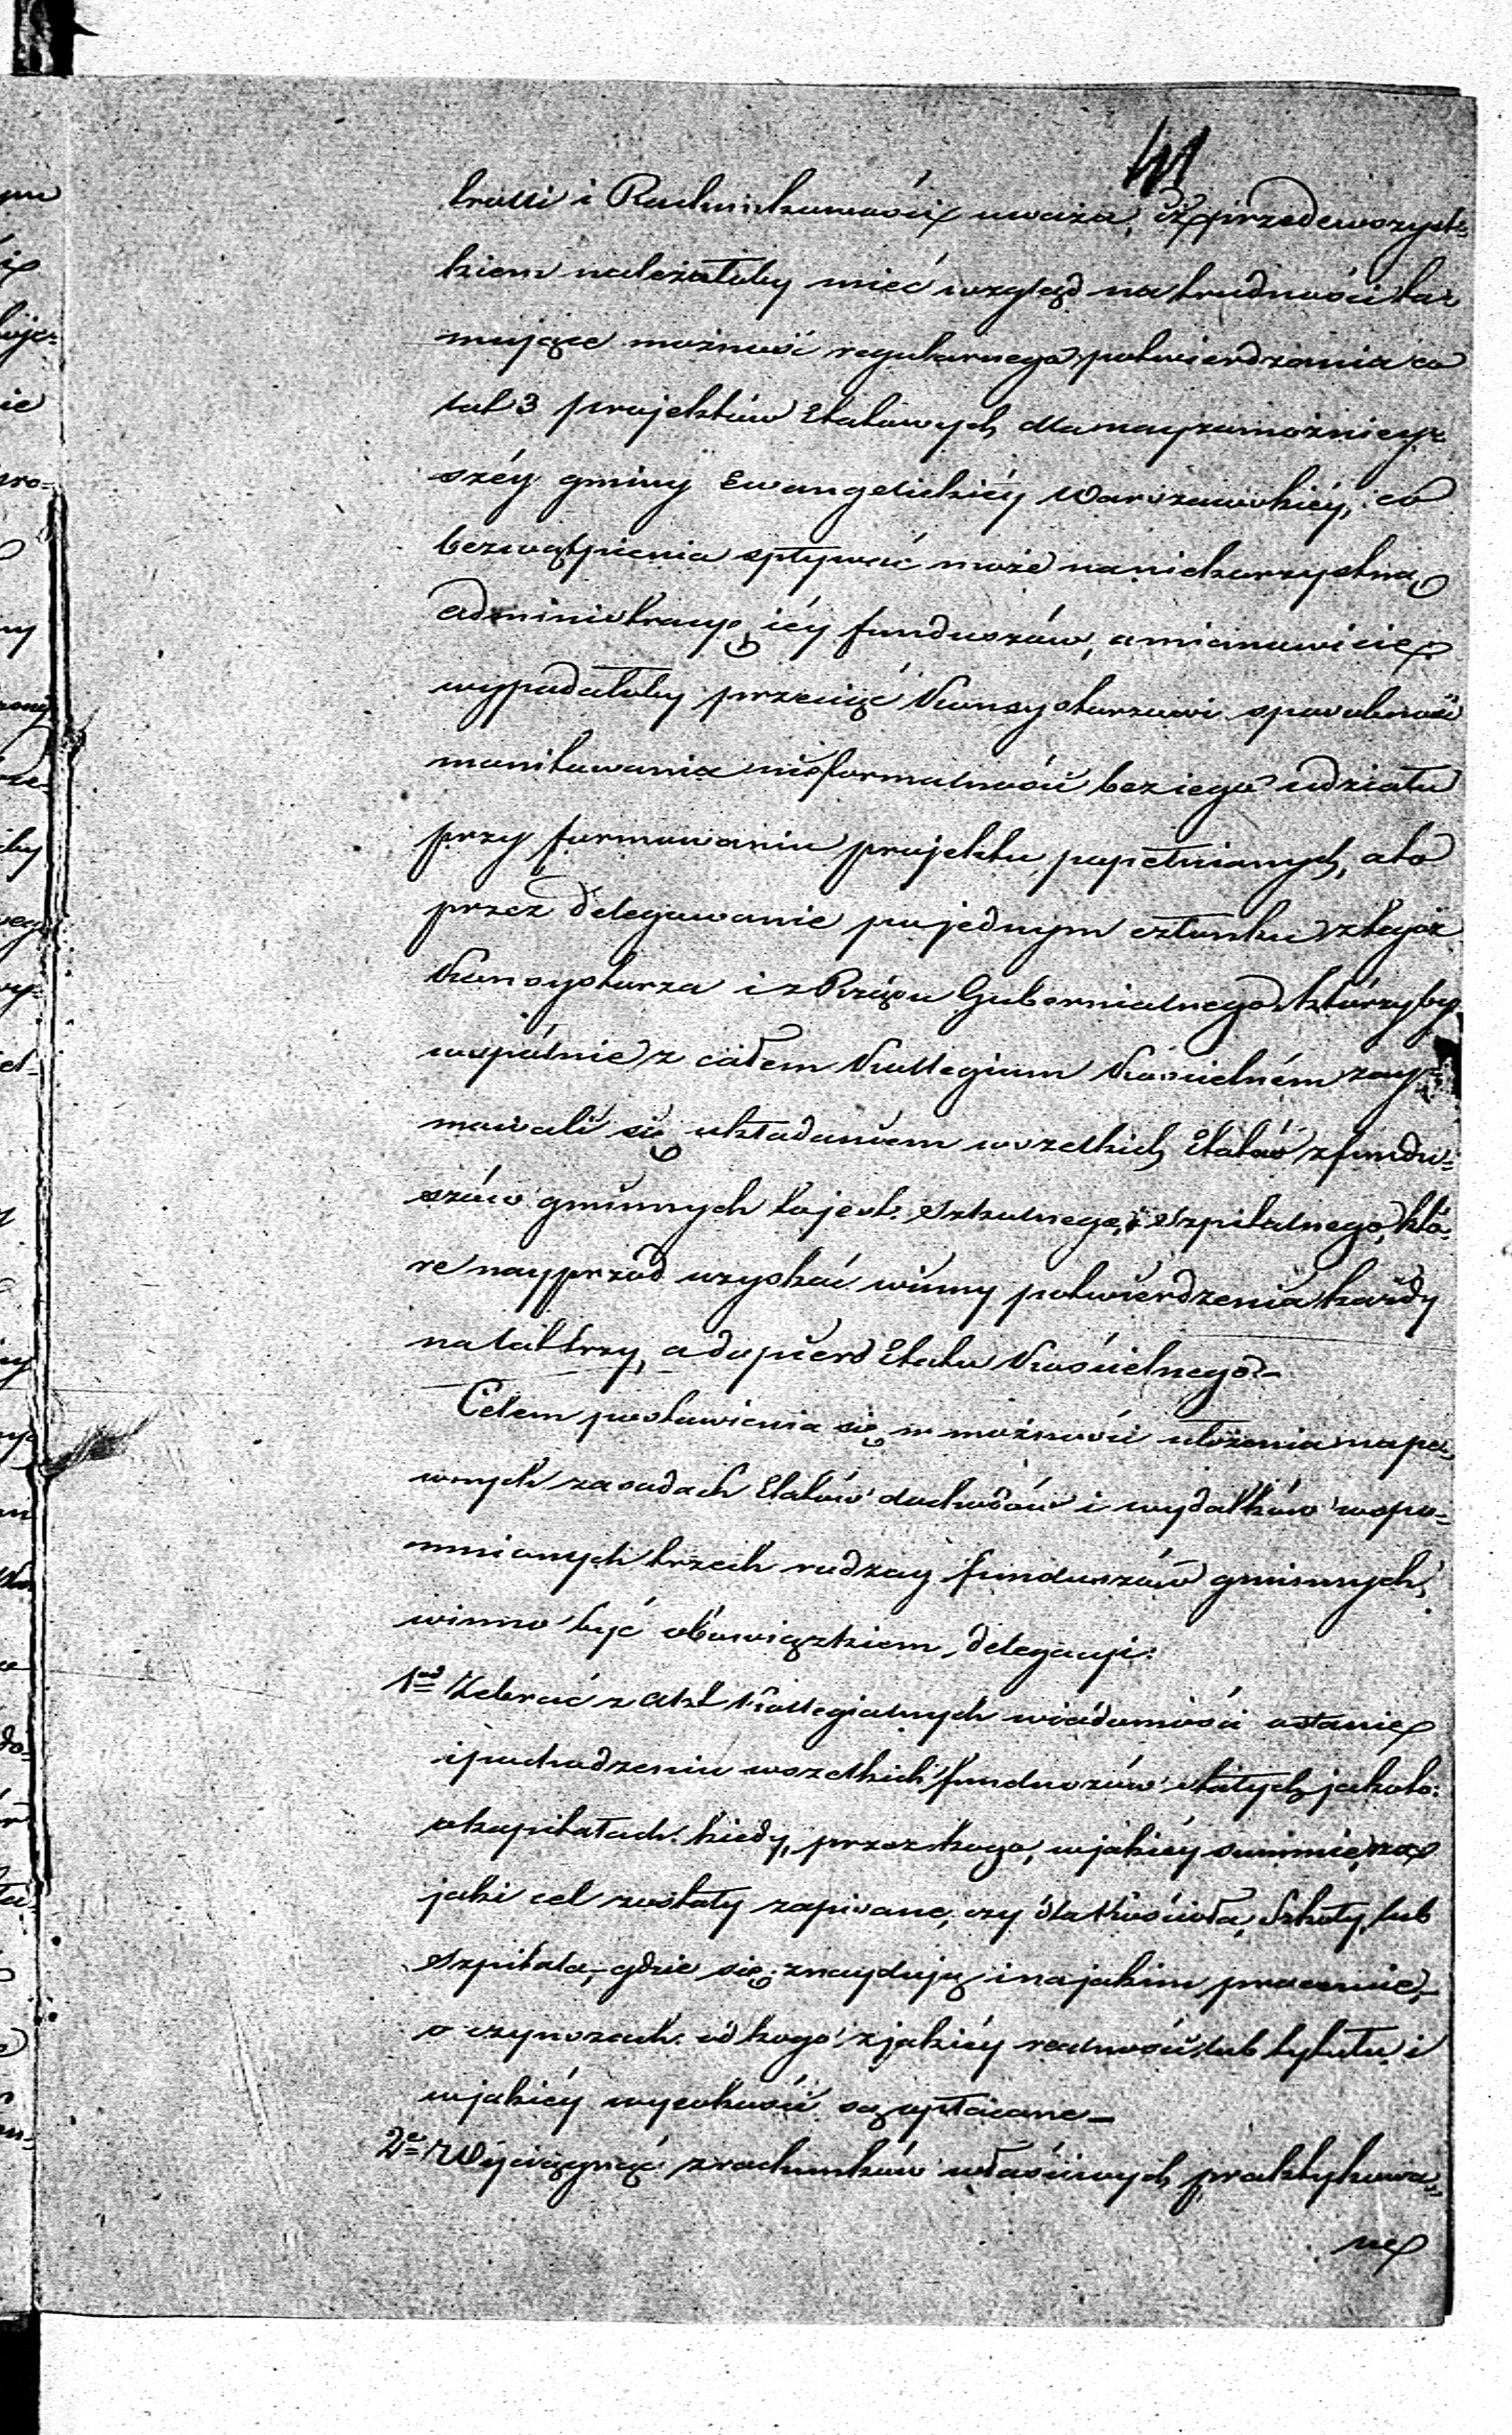 41
trolli i Rachunkowości uważa, iż przedewszyst=
kiem należałoby mieć wzgląd na trudności ta=
mujące możność regularnego potwierdzania co
lat 3 projektów Etatowych dla nayzamożniey=
széy gminy Ewangelickiéy Warszawskiéy, co
bezwątpienia spływać może na niekorzystną
administracyę iéy funduszów, a mianowicie
wypadałoby przeciąć Konsystorzowi sposobność
monitowania nieformalności bez iego udziału
przy formowaniu projektu popełnianych, a to
przez delegowanie po jednym członku z tegoż
Konsystorza i z Rządu Gubernialnego, którzyby
wspólnie z całem Kollegium Kościelném zay=
mowali się układaniem wszelkich Etatów z fundu=
szów gminnych to jest. Szkolnego, i Szpitalnego, któ=
re nayprzód uzyskać winny potwierdzenia każdy
na lat trzy, a dopiero Etatu Kościelnego.—
Celem postawienia się w możności ułożenia na pe=
wnych zasadach Etatów dochodów i wydatków wspo=
mnionych trzech rodzay funduszów gminnych,
winno być obowiązkiem delegacyi:
1od Zebrać z Akt Kollegialnych wiadomości o stanie
i pochodzeniu wszelkich funduszów stałych jakoto:
o kapitałach. kiedy, przez kogo, w jakiéy summie, na
jaki cel zostały zapisane, czy dla Kościoła, Szkoły, lub
Szpitala, gdzie się znaydują i na jakim procencie,—
o czynszach. od kogo z jakiéy realności lub tytułu i
w jakiéy wysokości są opłacane.—
2e Wyciągnąć z rachunków właściwych praktykowa=
ne